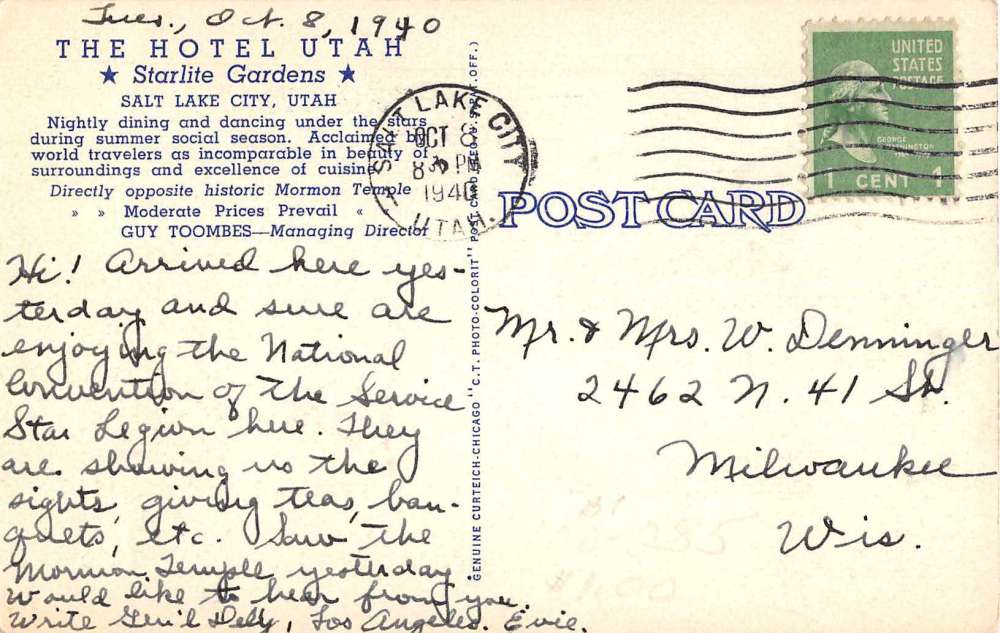 Tues., Oct. 8, 1940
THE HOTEL UTAH
★ Starlite Gardens ★
SALT LAKE CITY, UTAH
Nightly dining and dancing under the stars
during summer social season. Acclaimed by
world travelers as incomparable in beauty of
surroundings and excellence of cuisine.
Directly opposite historic Mormon Temple
» » Moderate Prices Prevail «
GUY TOOMBES—Managing Director
Hi! Arrived here yes-
terday and sure are
enjoying the National
Convention of the Service
Star Legion here. They
are showing us the
sights, giving teas, ban-
quets, etc. Saw the
Mormon Temple yesterday
Would like to hear from you.
Write Gen'l Del'y, Los Angeles. Evie.
GENUINE CURTEICH-CHICAGO "C.T. PHOTO-COLORIT" POST CARD (REG. U.S. PAT. OFF.)
SALT LAKE CITY
OCT 8
PM
1940
UTAH.
UNITED
STATES
POSTAGE
GEORGE
WASHINGTON
1 CENT 1
POST CARD
Mr. & Mrs. W. Denninger
2462 N. 41 St.
Milwaukee
Wis.
285
$1.00